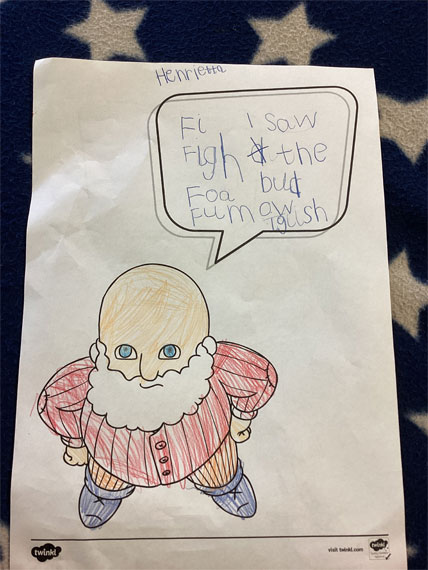 Henrietta
Fi I Saw
Figh the
Foa bud
Fum ow
Iglish
twinkl
visit twinkl.com